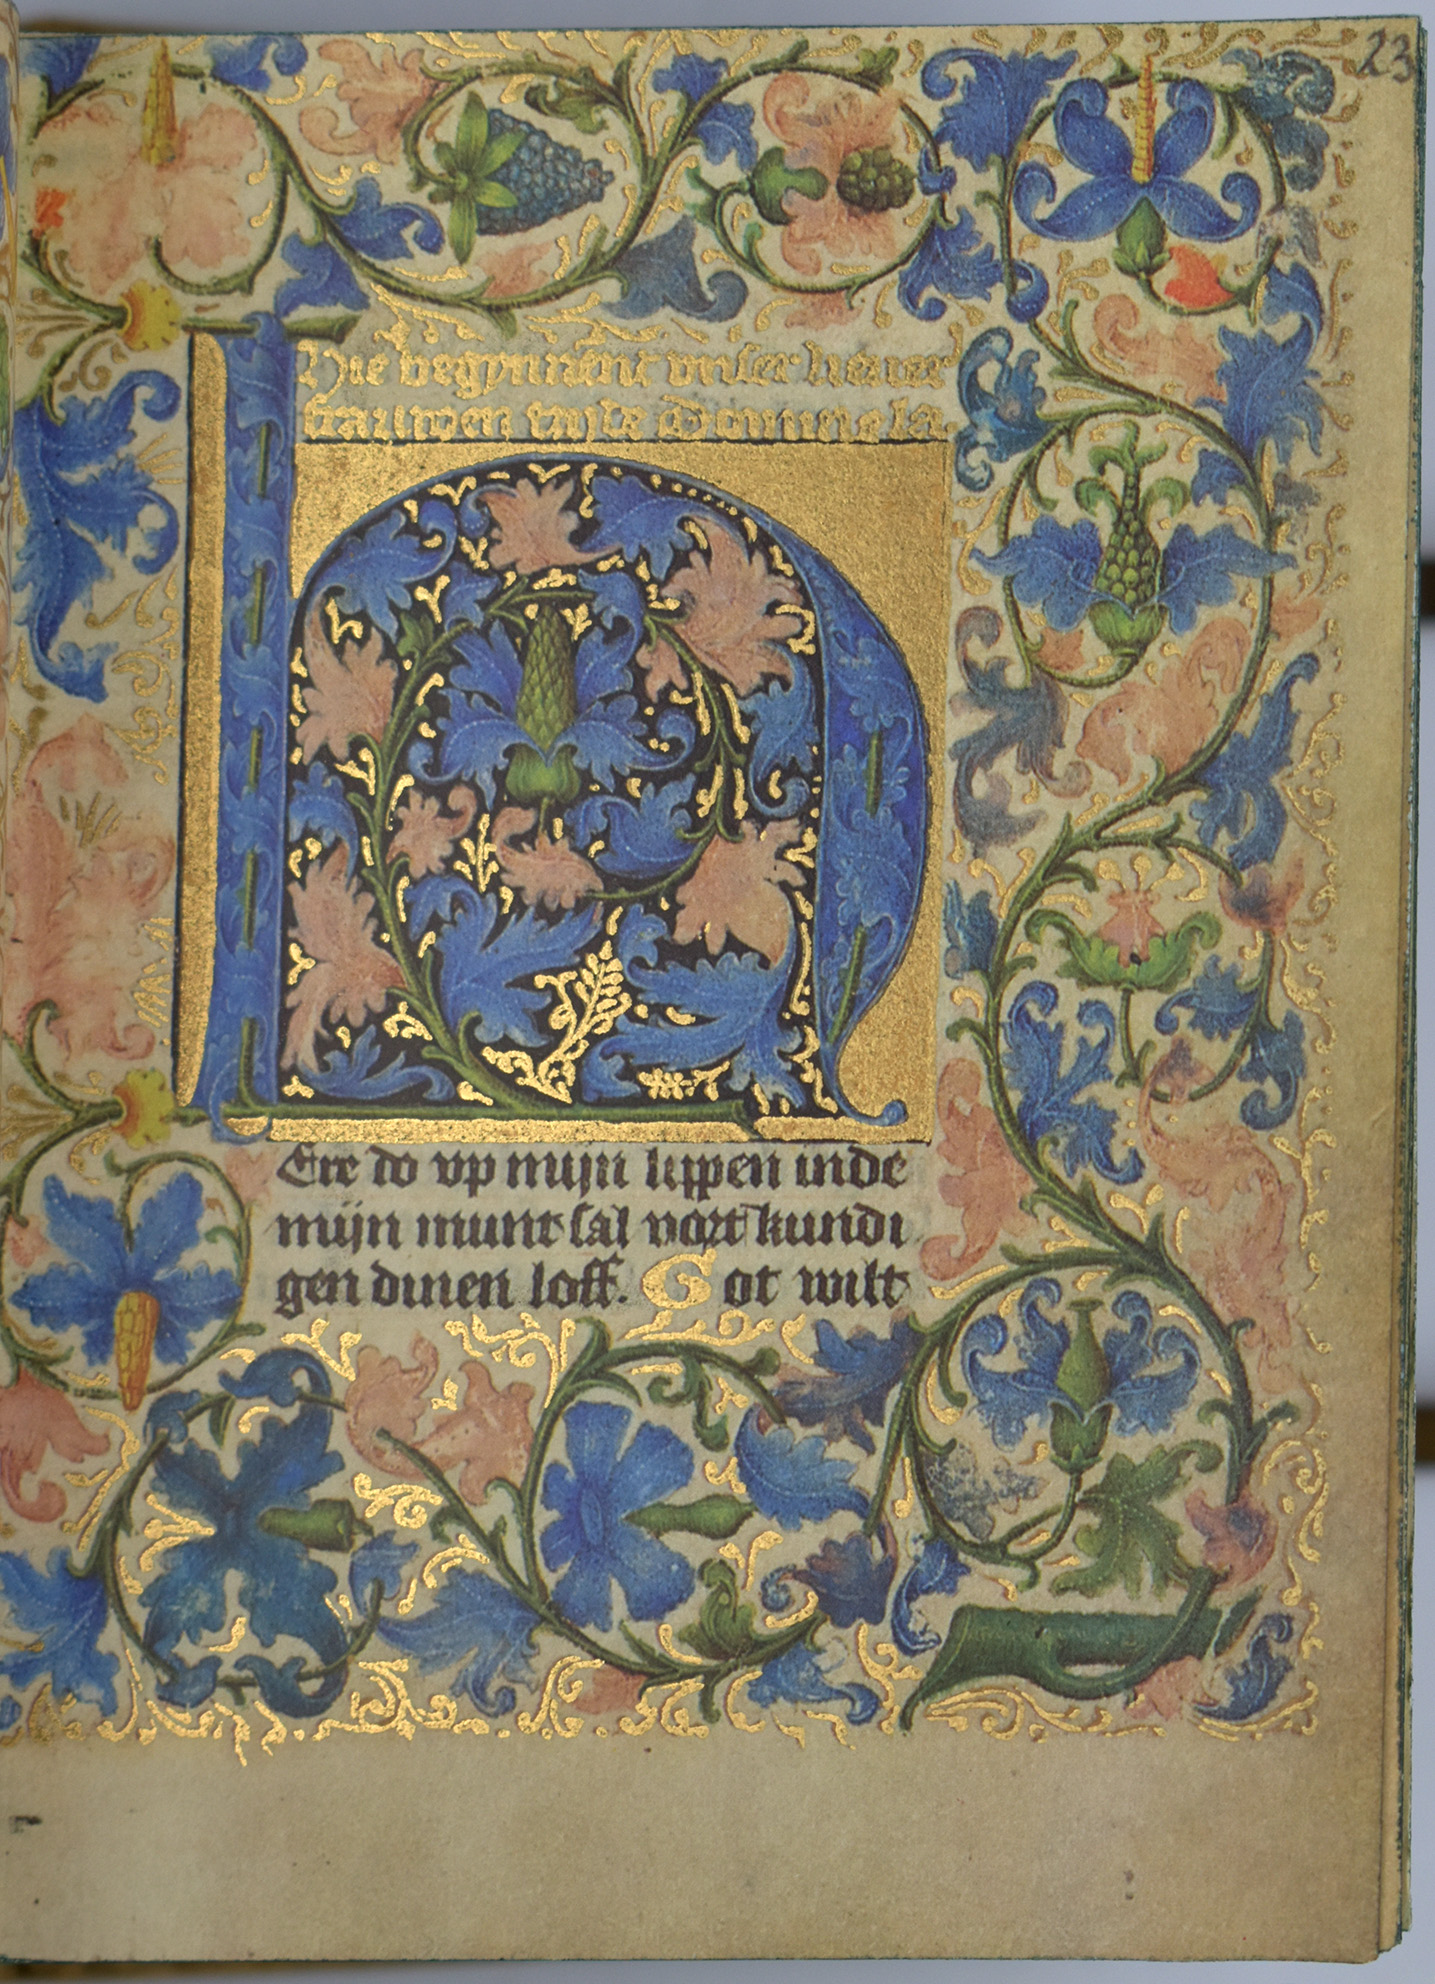 23
Hie begynnent vnser lieuer
frauwen tzijde Domine la
HEre do vp mijn lippen inde
mijn munt sal vort kundi
gen dinen loff. Got wilt